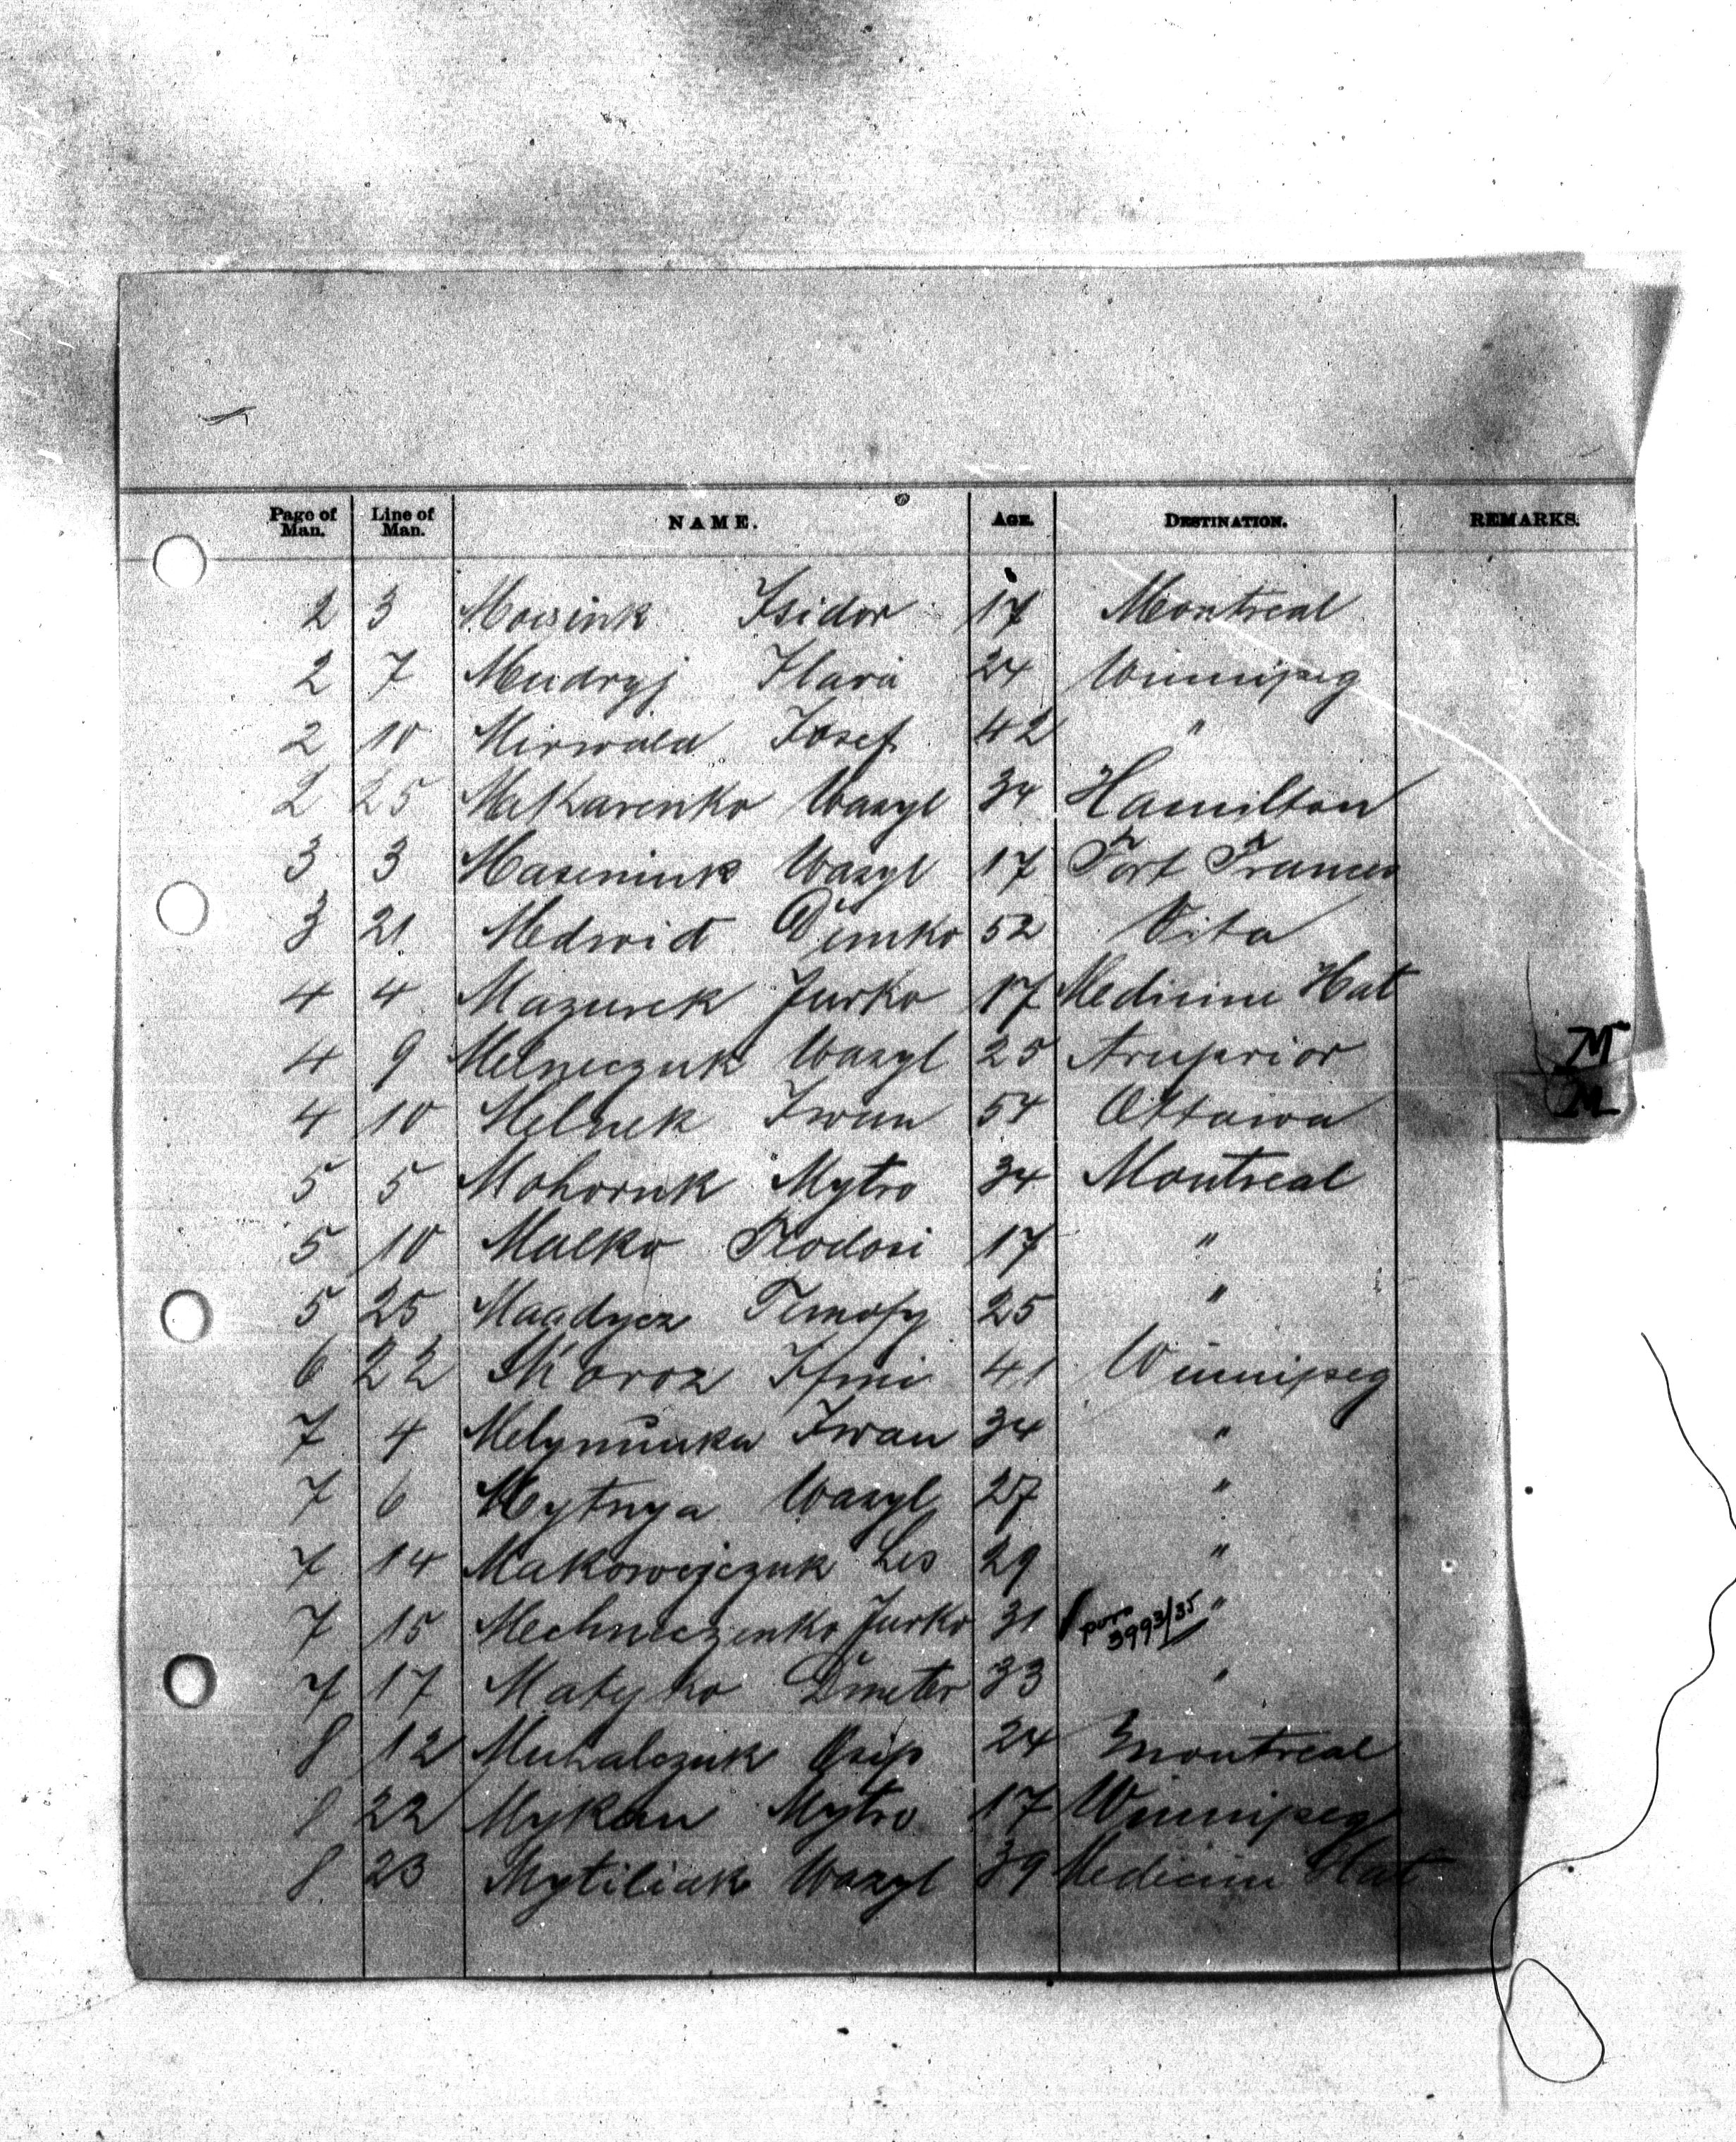 Page of Man. Line of Man. NAME. AGE. DESTINATION. REMARKS.
2 3 Moisink Isidor 17 Montreal
2 7 Mudryj Ilara 24 Winnipeg
2 10 Mirwala Josef 42 "
2 25 Makarenko Wasyl 34 Hamilton
3 3 Maseniuk Wasyl 17 Fort Frances
3 21 Medwid Dimko 52 Vita
4 4 Mazurek Jurko 17 Medicine Hat
M
4 9 Melneczuk Wasyl 25 Arnprior
M
4 10 Melnek Iwan 54 Ottawa
5 5 Mohoruk Mytro 34 Montreal
5 10 Malko Teodosi 17 "
5 25 Maadycz Timofy 25 "
6 22 Moroz Ifmi 41 Winnipeg
7 4 Melyniuka Iwan 34 "
7 6 Mytnya Wasyl 27 "
7 14 Makowejczuk Les 29 "
7 15 Mechneczenko Jurko 31 3993/35 "
7 17 Matyko Dmeter 33 "
8 12 Muhalczuk Osip 24 Montreal
8 22 Mykan Mytro 17 Winnipeg
8 23 Mytiliak Wasyl 39 Medicine Hat